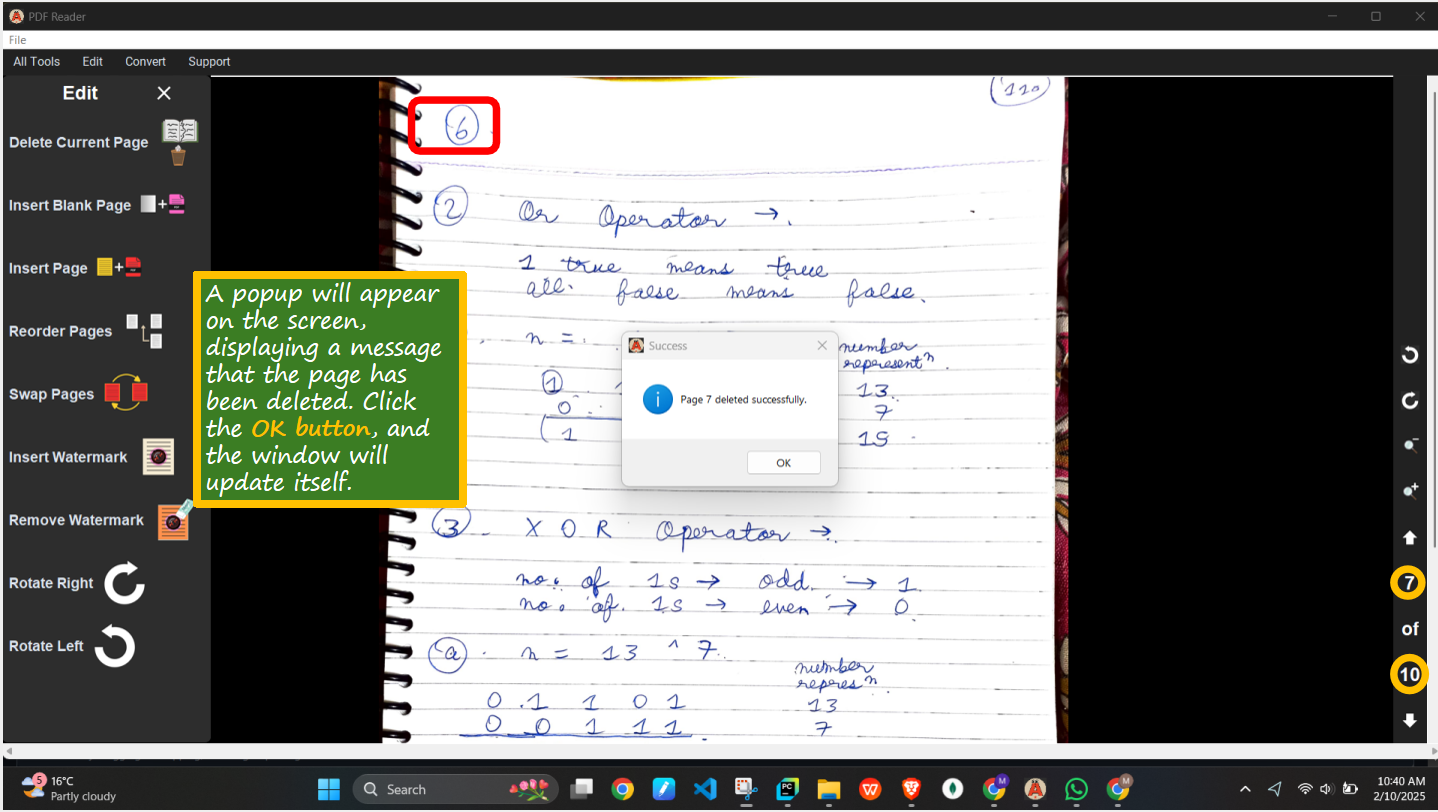 PDF Reader
File
All Tools Edit Convert Support
Edit
Delete Current Page
Insert Blank Page
Insert Page
Reorder Pages
Swap Pages
Insert Watermark
Remove Watermark
Rotate Right
Rotate Left
A popup will appear
on the screen,
displaying a message
that the page has
been deleted. Click
the OK button, and
the window will
update itself.
110
6
2 Or Operator →.
1 true means true
all. false means false.
n =
number
represent n
1 1 13
0 7
1 15
3 X O R Operator →
no. of 1s → odd → 1
no. of 1s → even → 0
a. n = 13 ^ 7
number
repres n
0 1 1 0 1 13
0 0 1 1 1 7
Success
Page 7 deleted successfully.
OK
7
of
10
5
16°C
Partly cloudy
Search
PC
M
M
10:40 AM
2/10/2025